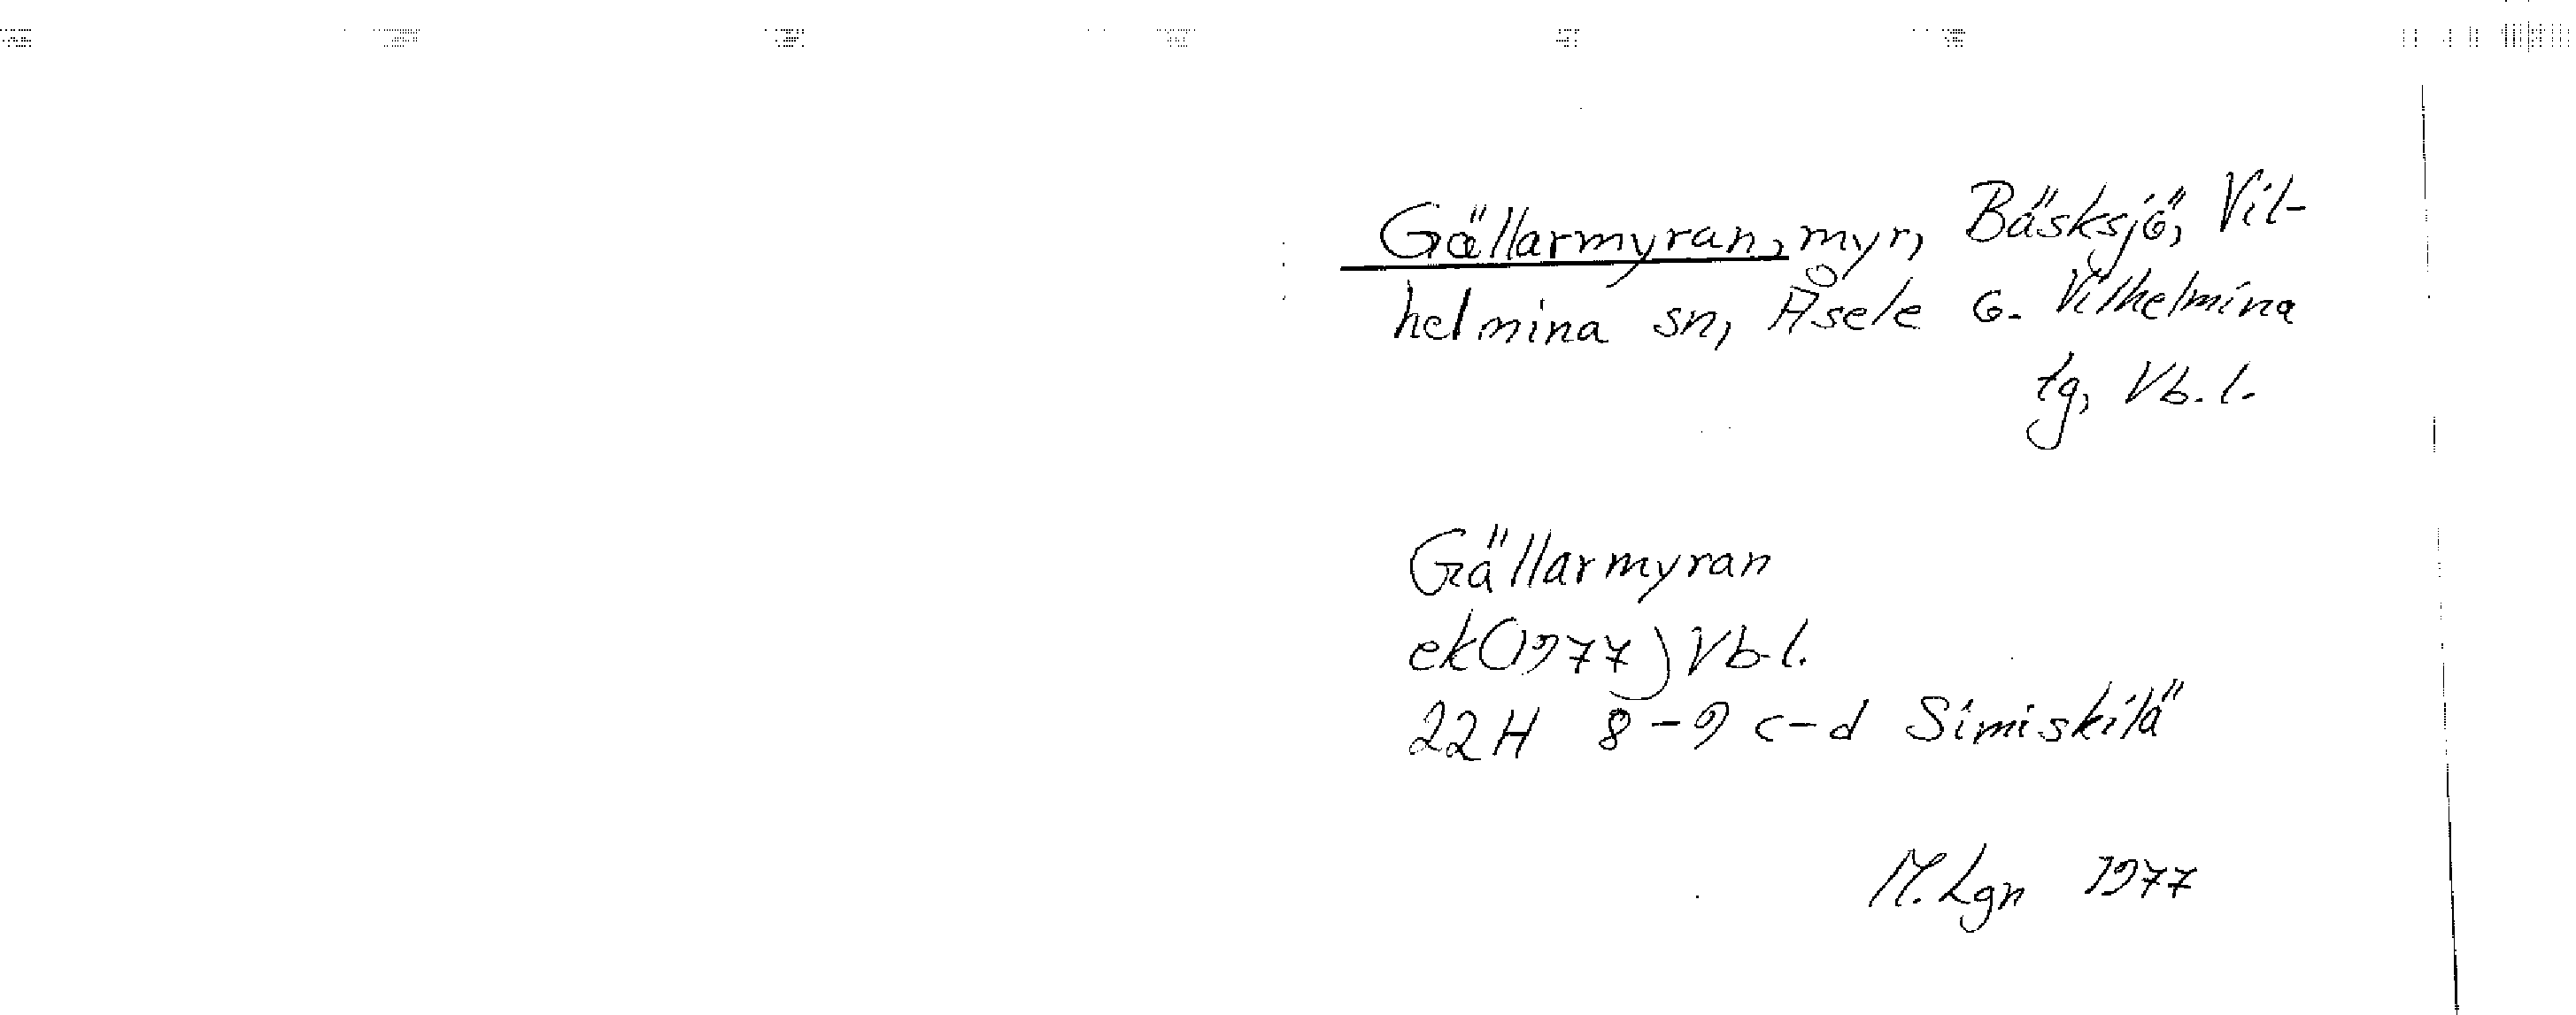 Gällarmyran, myr, Bäsksjö, Vil-
helmina sn, Åsele o. Vilhelmina
tg, Vb. l.
Gällarmyran
ek (1977) Vb l.
22 H 8-9 c-d Simiskilä
M. Lgn 1977